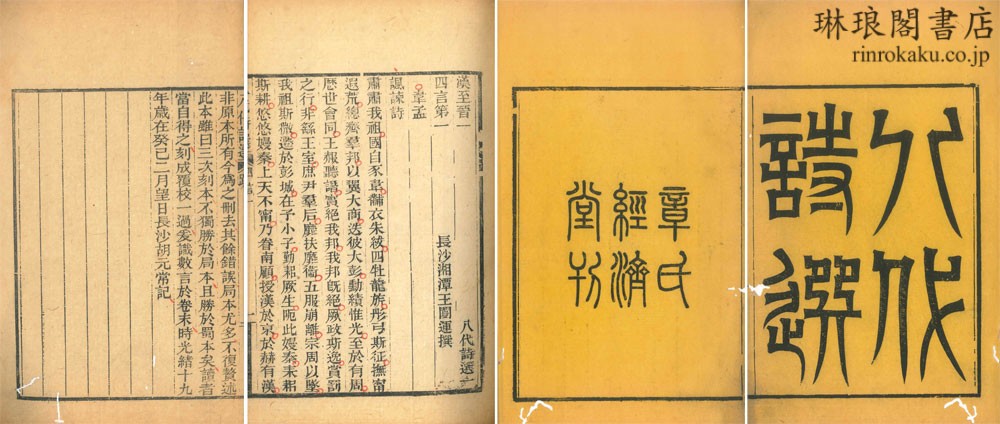 琳琅閣書店
rinrokaku.co.jp
八代
詩選
章氏
經濟
堂刊
漢至晉一　八代詩選一
四言第一　長沙湘潭王闓運撰
韋孟
諷諫詩
肅肅我祖國自豕韋黼衣朱紱四牡龍旂彤弓斯征撫甯
遐荒總齊羣邦以翼大商迭彼大彭勳績惟光至於有周
歷世會同王赧聽譖寔絕我邦我邦旣絕厥政斯逸賞罰
之行非繇王室庶尹羣后靡扶靡衞五服崩離宗周以墜
我祖斯微遷於彭城在予小子勤耶厥生阨此嫚秦耒耜
斯耕悠悠嫚秦上天不甯乃眷南顧授漢於京於赫有漢
非原本所有今爲之刪去其餘錯誤局本尤多不復贅述
此本雖曰三次刻本不獨勝於局本且勝於蜀本矣讀者
當自得之刻成覆校一過爰識數言於卷末時光緒十九
年歲在癸巳二月望日長沙胡元常記